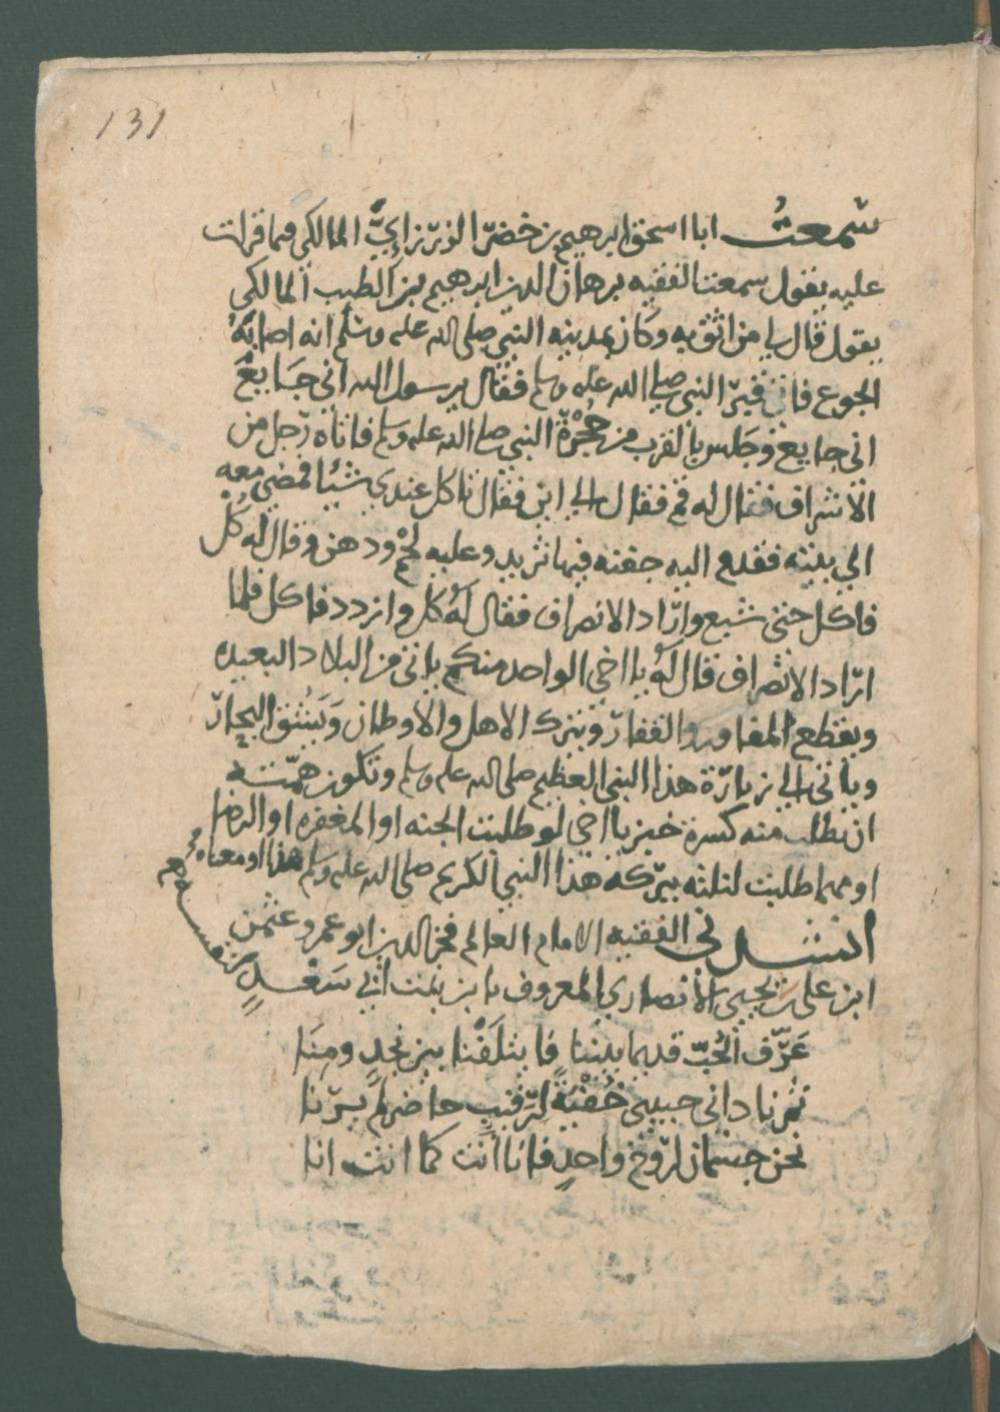 131
سمعت ابا اسحق ابرهيم بن خضر المالكي فيما قرات
عليه يقول سمعت الفقيه برهان الدين ابرهيم بن الطيب المالكي
يقول قال لي من اثق به وكان بمدينه النبي صلى الله عليه وسلم انه اصابه
الجوع فاتى قبر النبي صلى الله عليه وسلم فقال يرسول الله اني جايع
اني جايع وجلس بالقرب من حجرة النبي صلى الله عليه وسلم فاتاه رجل من
الاشراف فقال له قم فقال الى اين فقال تاكل عندي شيا فمضى معه
الى بيته فقدم اليه جفنه فيها ثريد وعليه لحم ودهن وقال له كل
فاكل حتى شبع واراد الانصراف فقال له كل وازدد فاكل فلما
اراد الانصراف قال له يا اخي الواحد منكم ياتي من البلاد البعيده
ويقطع المفاوز والقفار ويترك الاهل والاوطان ويشق البحار
وياتي الى زيارة هذا النبي العظيم صلى الله عليه وسلم وتكون همته
ان يطلب منه كسرة خبز يا اخي لو طلبت الجنه او المغفره او الرضا
او مهما طلبت لنلته ببركه هذا النبي الكريم صلى الله عليه وسلم هذا او معناه
انشدني الفقيه الامام العالم فخر الدين ابو عمرو عثمن
ابن علي بن يحيى الانصاري المعروف بابن بنت ابي سعد لنفسه
عرف الحب قديما بيننا فايتلفنا بين نجد ومنا
ثم نادانى حبيبي خفية لرقيب حاضر لم يرنا
نحن جسمان لروح واحد فانا انت كما انت انا